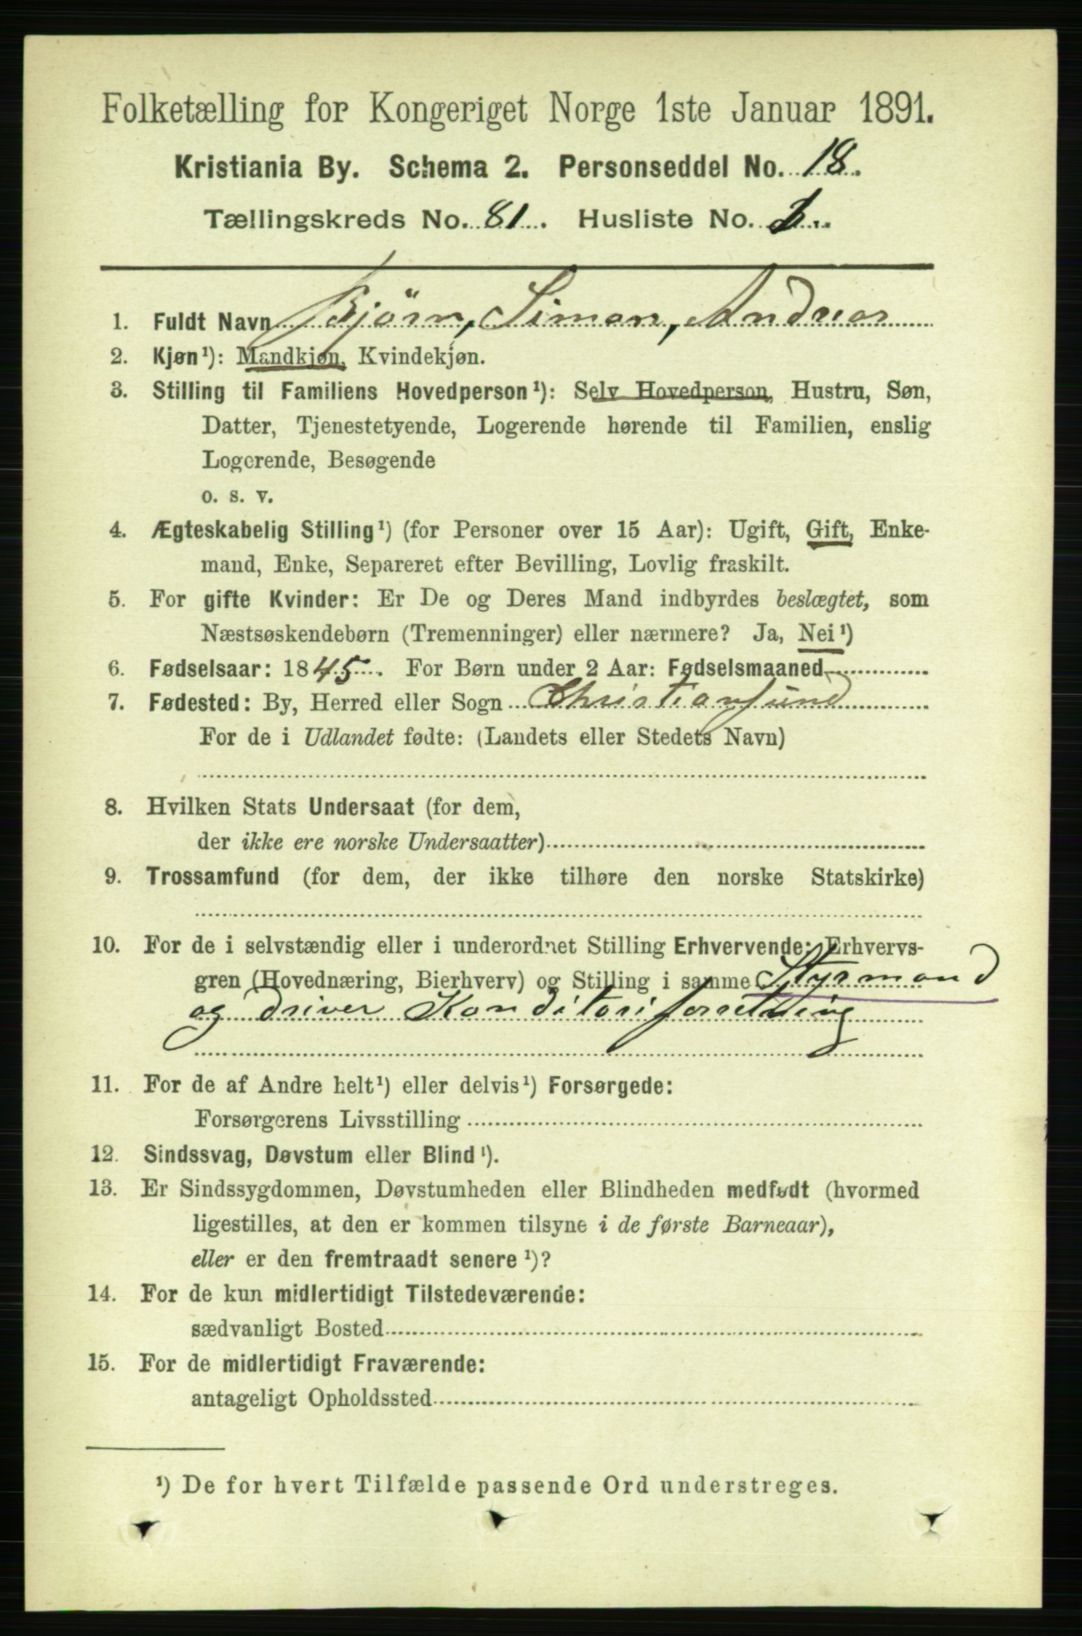 Folketælling for Kongeriget Norge 1ste Januar 1891.
Kristiania By. Schema 2. Personseddel No. 18.
Tællingskreds No. 81. Husliste No.
1. Fuldt Navn Bjørn, Simon, Andreas
2. Kjøn¹): Mandkjøn, Kvindekjøn.
3. Stilling til Familiens Hovedperson¹): Selv Hovedperson, Hustru, Søn,
Datter, Tjenestetyende, Logerende hørende til Familien, enslig
Logerende, Besøgende
o. s. v.
4. Ægteskabelig Stilling¹) (for Personer over 15 Aar): Ugift, Gift, Enke-
mand, Enke, Separeret efter Bevilling, Lovlig fraskilt.
5. For gifte Kvinder: Er De og Deres Mand indbyrdes beslægtet, som
Næstsøskendebørn (Tremenninger) eller nærmere? Ja, Nei¹)
6. Fødselsaar: 1845. For Børn under 2 Aar: Fødselsmaaned
7. Fødested: By, Herred eller Sogn Christiansund
For de i Udlandet fødte: (Landets eller Stedets Navn)
8. Hvilken Stats Undersaat (for dem,
der ikke ere norske Undersaatter)
9. Trossamfund (for dem, der ikke tilhøre den norske Statskirke)
10. For de i selvstændig eller i underordnet Stilling Erhvervende: Erhvervs-
gren (Hovednæring, Bierhverv) og Stilling i samme Styrmand
og driver Konditoriforretning
11. For de af Andre helt¹) eller delvis¹) Forsørgede:
Forsørgerens Livsstilling
12. Sindssvag, Døvstum eller Blind¹).
13. Er Sindssygdommen, Døvstumheden eller Blindheden medfødt (hvormed
ligestilles, at den er kommen tilsyne i de første Barneaar),
eller er den fremtraadt senere¹)?
14. For de kun midlertidigt Tilstedeværende:
sædvanligt Bosted
15. For de midlertidigt Fraværende:
antageligt Opholdssted
¹) De for hvert Tilfælde passende Ord understreges.